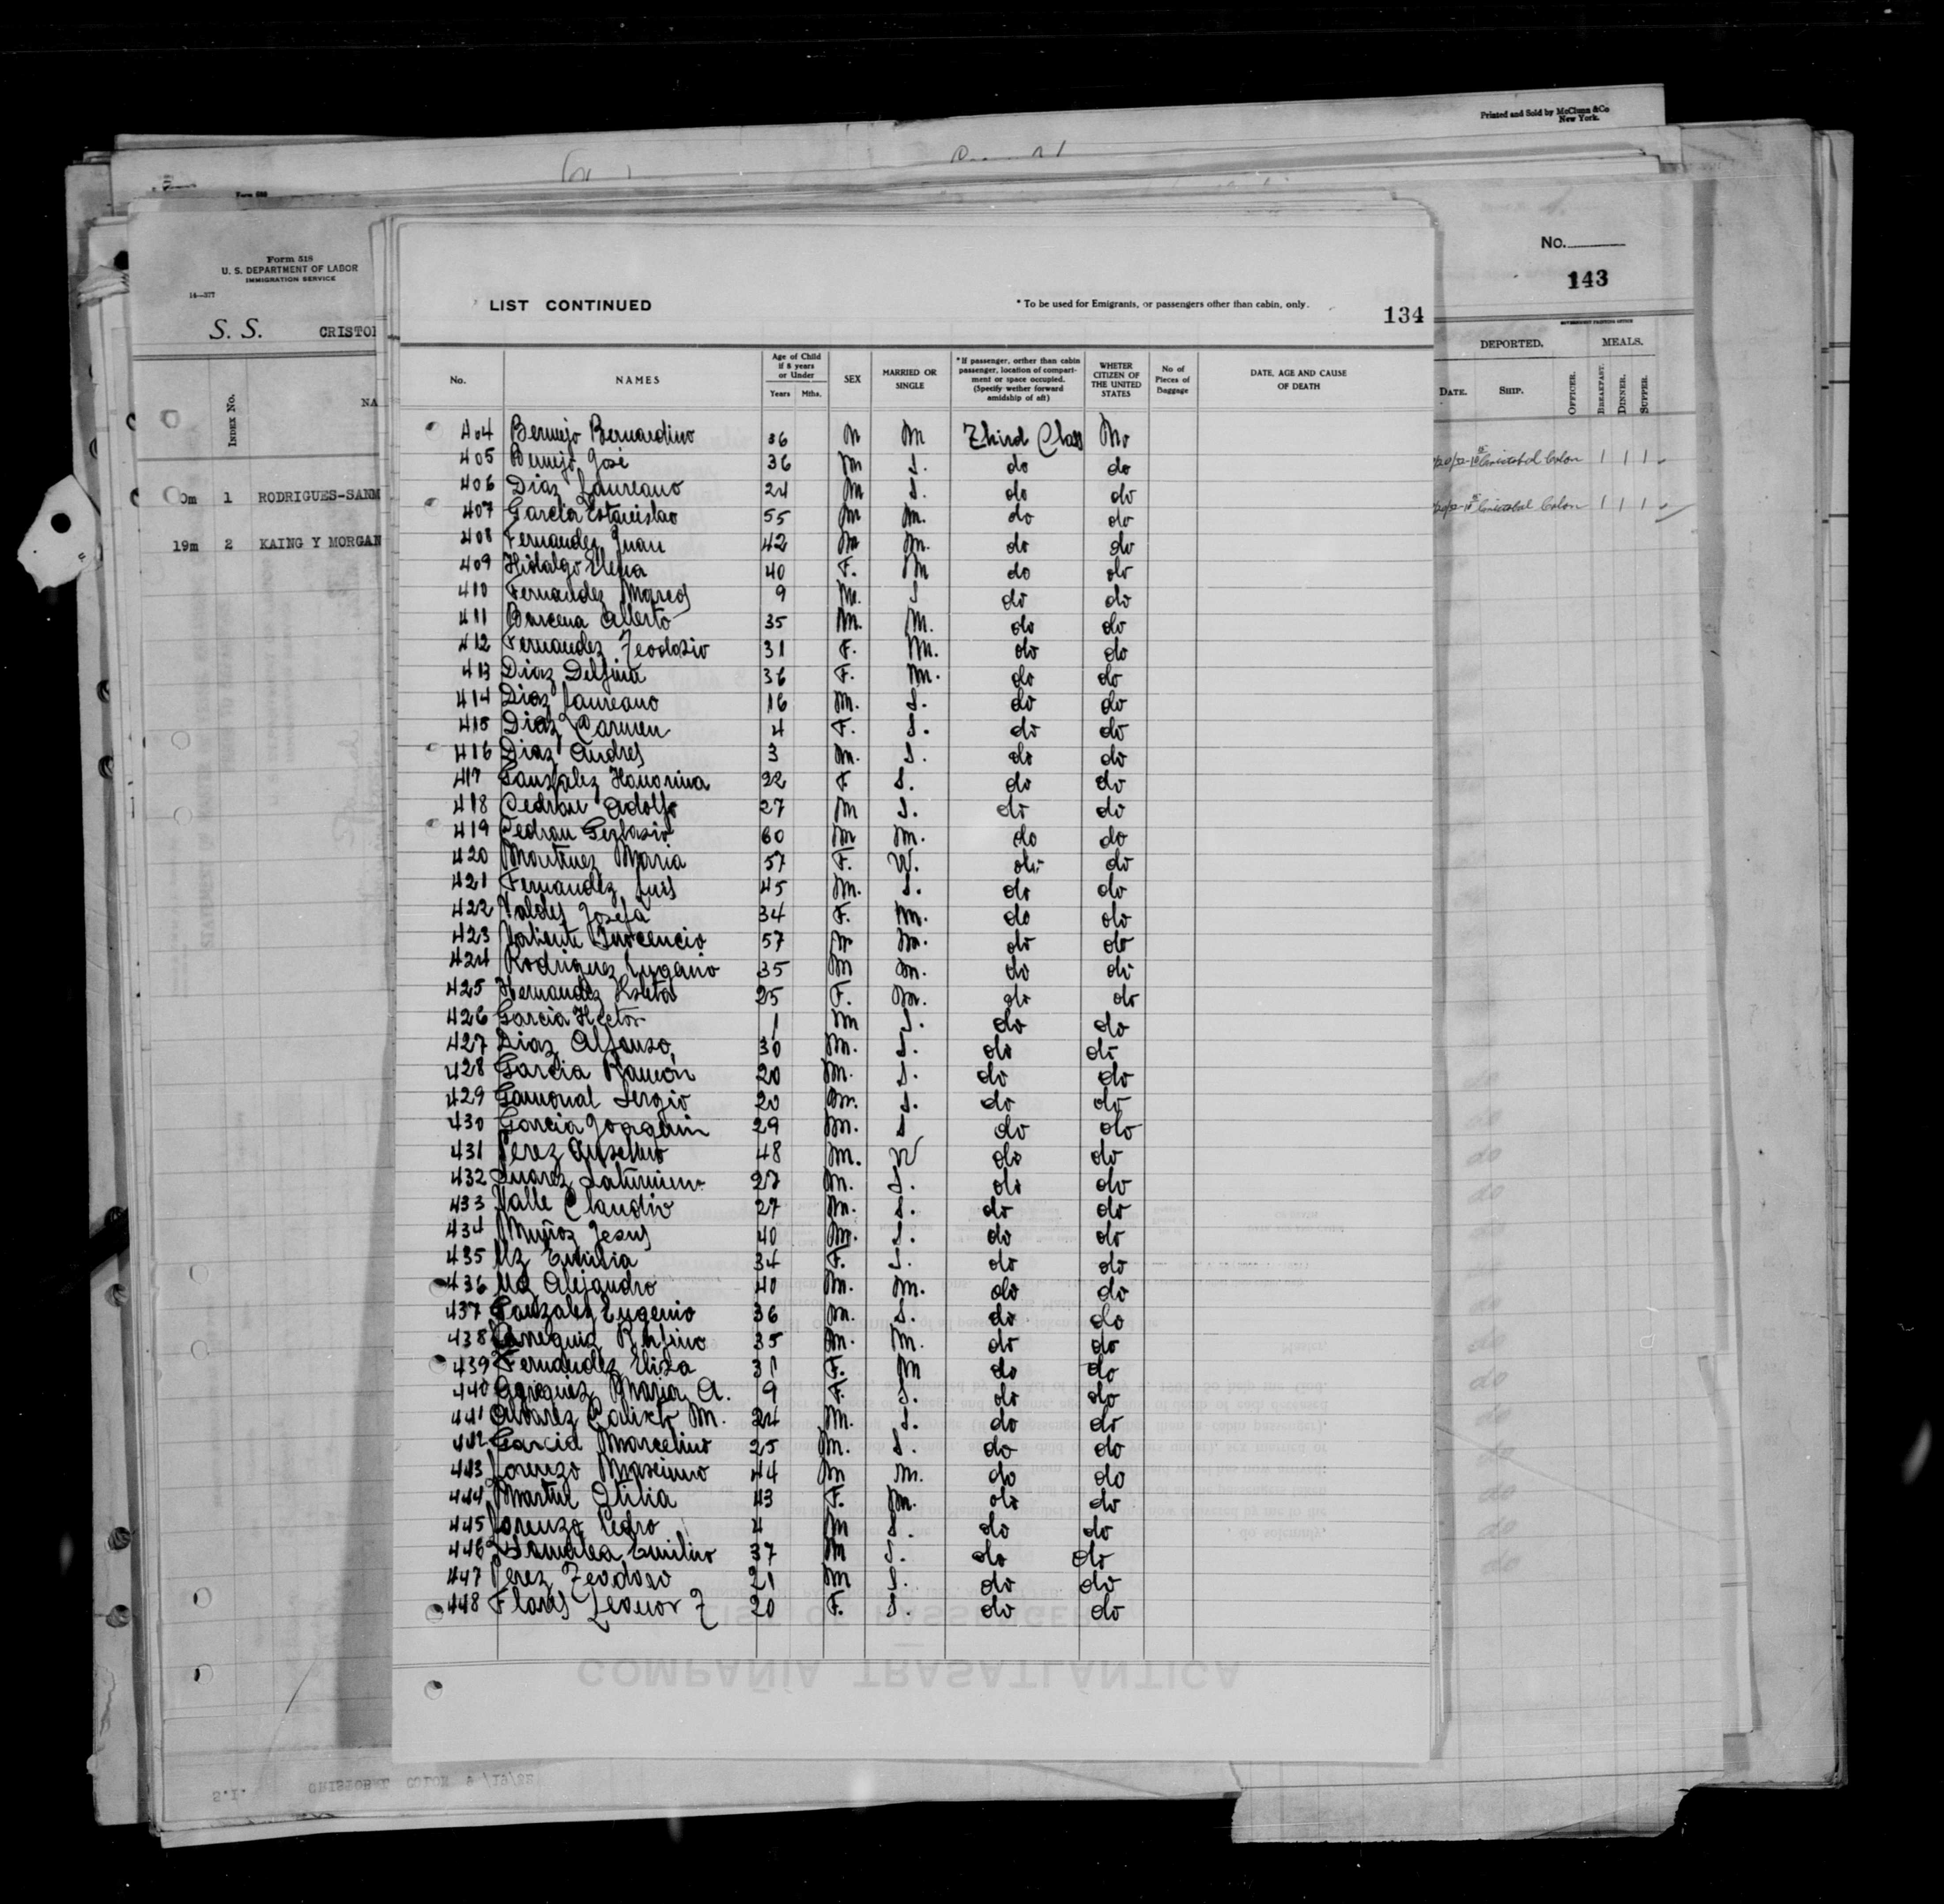 Printed and Sold by McClunn & Co
New York.
Form 518
U. S. DEPARTMENT OF LABOR
IMMIGRATION SERVICE
14—377
S. S. CRISTO
INDEX No.
NA
1 RODRIGUES-SANM
19m 2 KAING Y MORGAN
No.
143
DEPORTED. MEALS.
DATE. SHIP. OFFICER. BREAKFAST. DINNER. SUPPER.
Cristobal Colon 1 1 1
Cristobal Colon 1 1 1
LIST CONTINUED
* To be used for Emigrants, or passengers other than cabin, only.
134
No.
NAMES
Age of Child if 8 years or Under
Years Mths.
SEX
MARRIED OR SINGLE
* If passenger, orther than cabin passenger, location of compartment or space occupied. (Specify wether forward amidship of aft)
WHETER CITIZEN OF THE UNITED STATES
No of Pieces of Baggage
DATE, AGE AND CAUSE OF DEATH
404 Bermejo Bernardino 36 M M Third Class No
405 Bermejo José 36 M S. do do
406 Diaz Laureano 24 M S. do do
407 Garcia Estanislao 55 M M. do do
408 Fernandez Juan 42 M M. do do
409 Hidalgo Elena 40 F. M do do
410 Fernandez Marcos 9 M. S do do
411 Barcena Alberto 35 M. M. do do
412 Fernandez Teodosio 31 F. M. do do
413 Diaz Delfina 36 F. M. do do
414 Diaz Laureano 16 M. S. do do
415 Diaz Carmen 4 F. S. do do
416 Diaz Andres 3 M. S. do do
417 Gonzalez Honorina 22 F S. do do
418 Cedran Adolfo 27 M S. do do
419 Cedran 60 M M. do do
420 Martinez Maria 57 F. W. do do
421 Fernandez Luis 45 M. S. do do
422 Valdes Josefa 34 F. M. do do
423 Valiente Inocencio 57 M M. do do
424 Rodriguez 35 M M. do do
425 Hernandez 25 F. M. do do
426 Garcia Hector 1 M S. do do
427 Diaz Alfonso 30 M. S. do do
428 Garcia Ramón 20 M. S. do do
429 Gamonal Sergio 20 M. S. do do
430 Garcia Joaquin 29 M. S do do
431 Perez Anselmo 48 M. W do do
432 Suarez Saturnino 27 M. S. do do
433 Valle Claudio 27 M. S. do do
434 Muñoz Jesus 40 M. S. do do
435 Uz Emilia 34 F. S. do do
436 Alejandro 40 M. M. do do
437 Gonzalez Eugenio 36 M. S. do do
438 Rufino 35 M. M. do do
439 Fernandez Elisa 31 F. M do do
440 Maria A. 9 F. S. do do
441 Alvarez Calixto M. 24 M. S. do do
442 Garcia Marcelino 25 M. S. do do
443 Lorenzo 44 M M. do do
444 Otilia 43 F. M. do do
445 Lorenzo Pedro 4 M S. do do
446 Emilio 37 M S. do do
447 Perez Teodoso 21 M S. do do
448 Flores Leonor Z 20 F. S. do do
COMPAÑÍA TRASATLÁNTICA